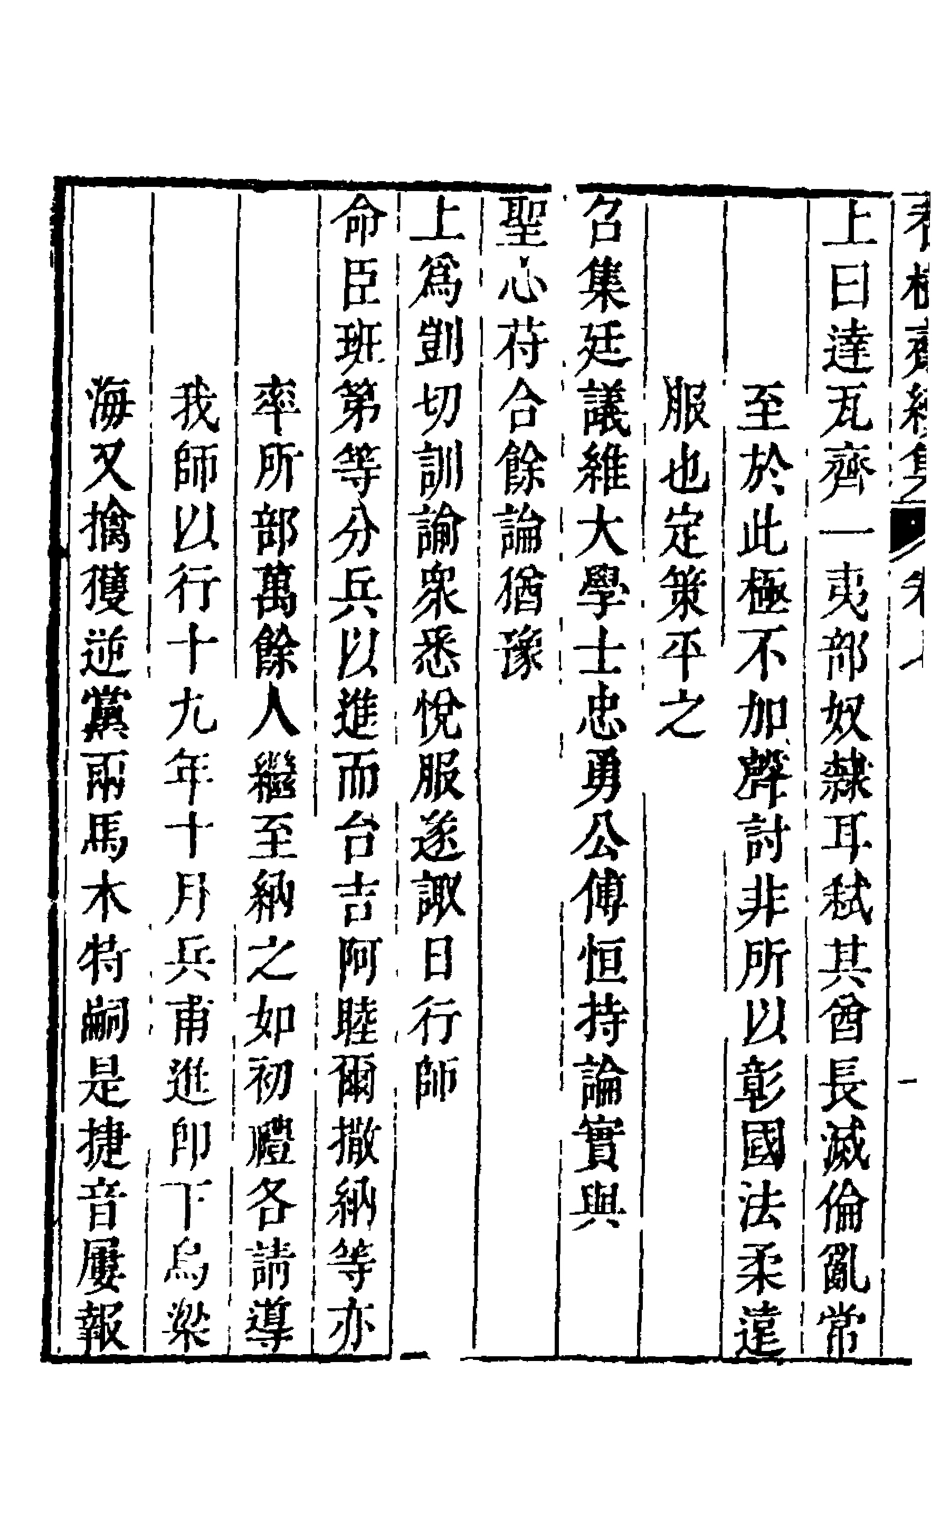 上曰達瓦齊一夷部奴隸耳弑其酋長滅倫亂常
至於此極不加聲討非所以彰國法柔遠
服也定策平之
召集廷議維大學士忠勇公傅恒持論實與
聖心苻合餘論猶豫
上爲剴切訓諭衆悉悅服遂諏日行師
命臣班第等分兵以進而台吉阿睦爾撒納等亦
率所部萬餘人繼至納之如初禮各請導
我師以行十九年十月兵甫進卽下烏梁
海又擒獲逆黨兩馬木特嗣是捷音屢報